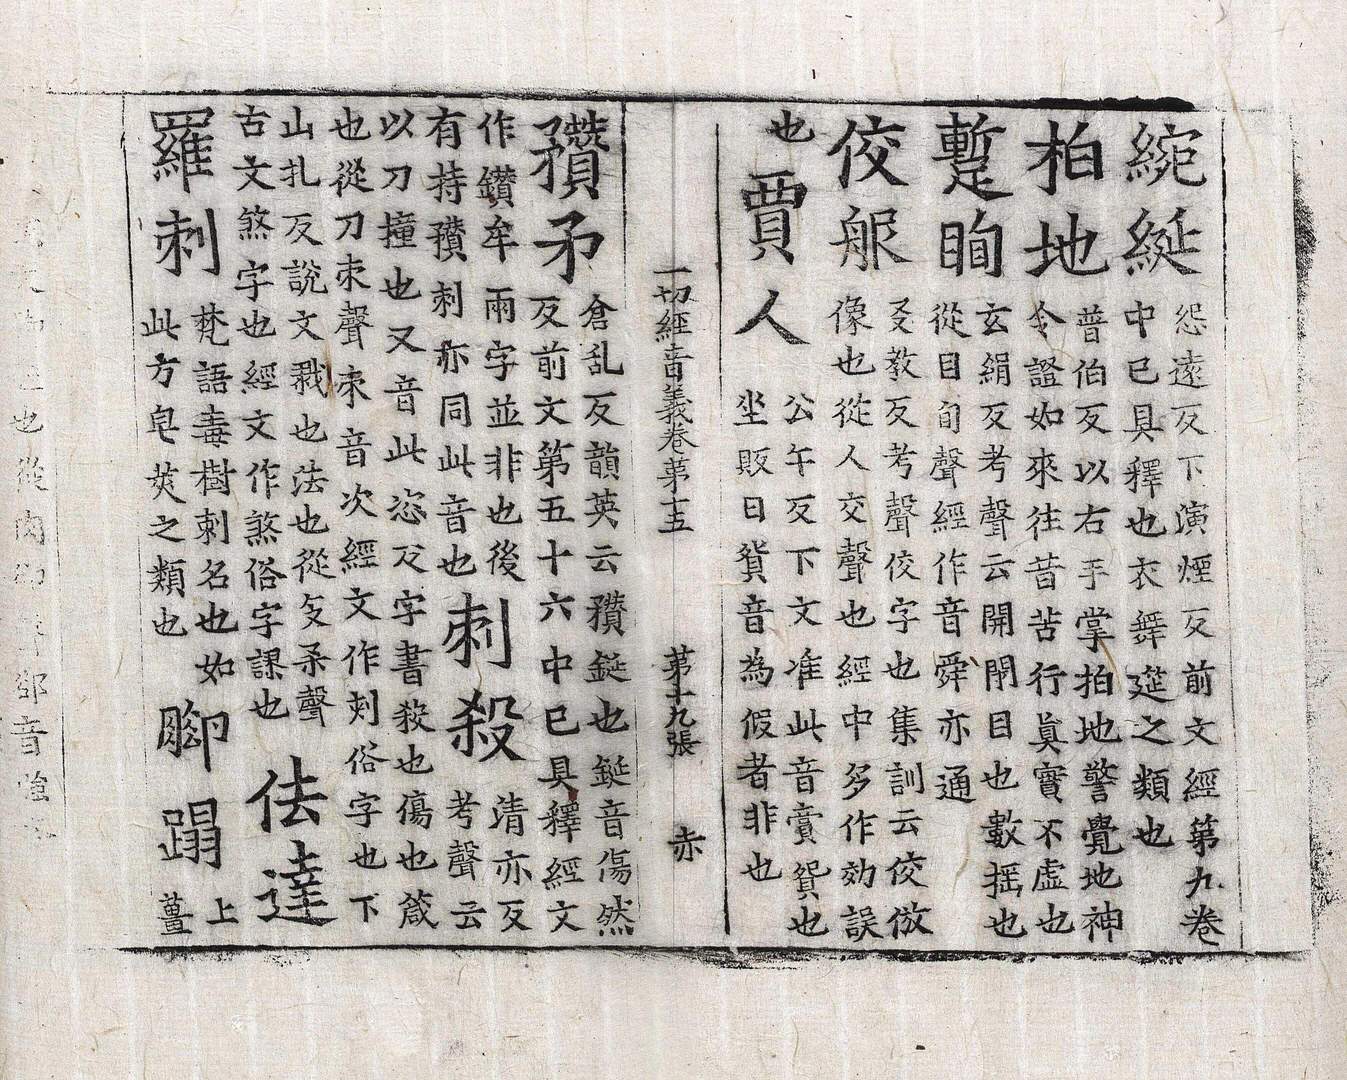 綩綖 怨遠反下演煙反前文經第九卷
中已具釋也衣舞筵之類也
柏地 普伯反以右手掌拍地警覺地神
令證如來往昔苦行真實不虛也
蹔眴 玄絹反考聲云開閉目也數搖也
從目旬聲經作音舜亦通
佼服 爻教反考聲佼字也集訓云佼倣
像也從人交聲也經中多作効誤
也
賈人 公午反下文准此音賣貨也
坐販曰貨音為假者非也
一切經音義卷第十五 第十九張 赤
穳矛 倉乱反韻英云穳鋋也鋋音傷然
反前文第五十六中已具釋經文
作鑽牟兩字並非也後
有持穳刺亦同此音也
刺殺 清亦反
考聲云
以刀撞也又音此恣反字書殺也傷也箴
也從刀朿聲朿音次經文作刾俗字也下
山扎反說文戮也法也從殳杀聲
古文煞字也經文作煞俗字課也
佉達
羅刺 梵語毒樹刺名也如
此方皂莢之類也
腳蹋 上
薑